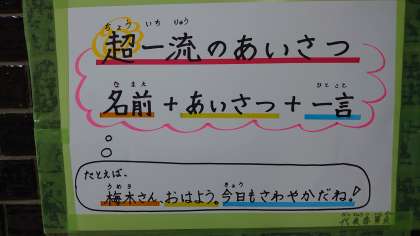 ちょう いち りゅう
超一流のあいさつ
な まえ ひと こと
名前+あいさつ+一言
たとえば、
うめき きょう
梅木さん、おはよう。今日もさわやかだね!